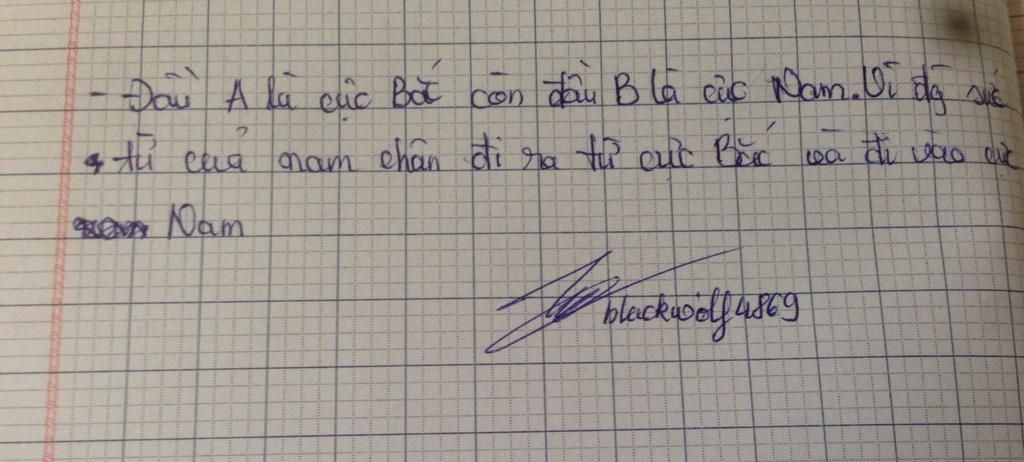 - Đầu A là cực Bắc còn đầu B là cực Nam. Vì đg sức
từ của nam châm đi ra từ cực Bắc và đi vào cực
Nam
blackwolf4869